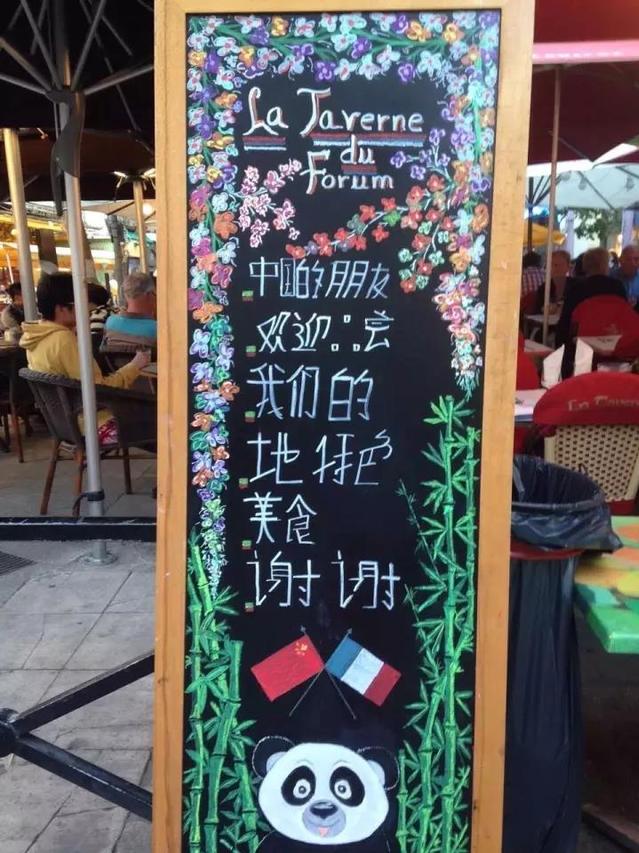 La Taverne
du
Forum
中国的朋友
欢迎品尝
我们的
地特色
美食
谢谢
La Taverne